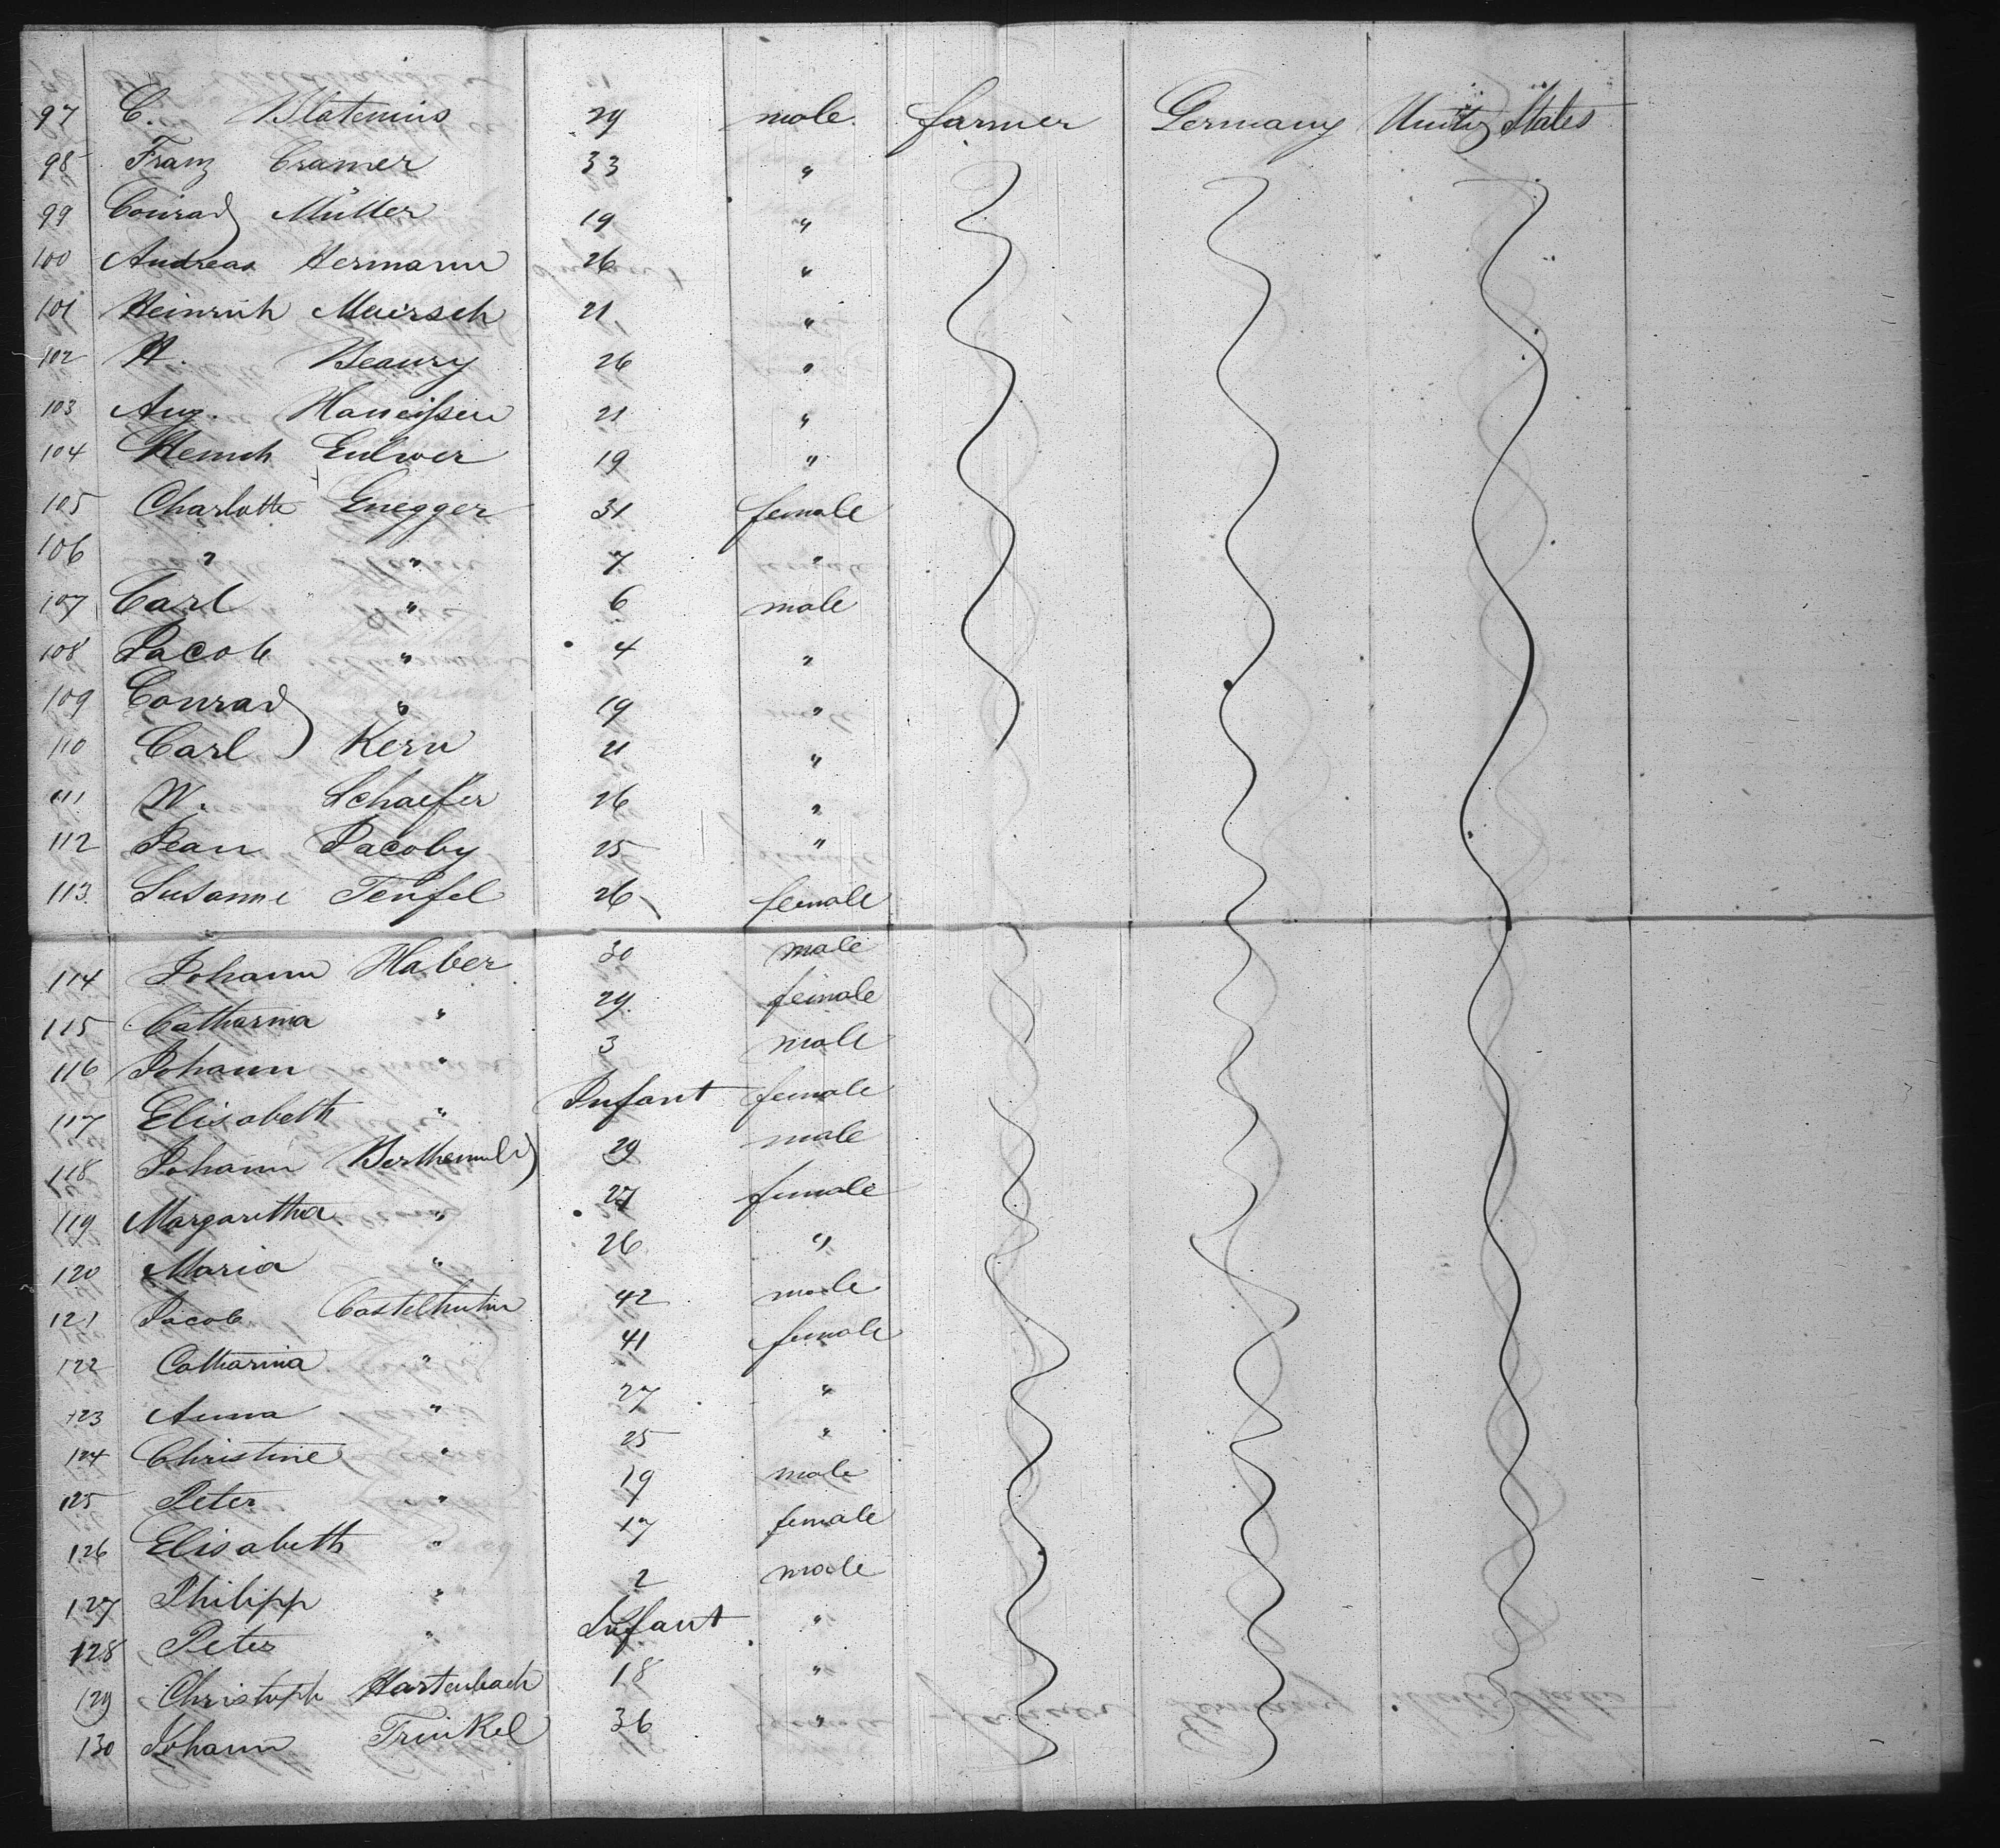 97 C. Blatenius 29 male farmer Germany United States
98 Franz Cramer 33 "
99 Conrad Müller 19 "
100 Andreas Hermann 26 "
101 Heinrich Muirsch 21 "
102 H. Beaury 26 "
103 Aug. Haneißen 21 "
104 Heinrich Eulwer 19 "
105 Charlotte Gnegger 31 female
106 " " 7 "
107 Carl " 6 male
108 Jacob " 4 "
109 Conrad " 19 "
110 Carl Kern 21 "
111 W. Schaefer 26 "
112 Jean Jacoby 25 "
113 Susanne Teufel 26 female
114 Johann Haber 30 male
115 Catharina " 29 female
116 Johann " 3 male
117 Elisabeth " Infant female
118 Johann 29 male
119 Margaretha " 27 female
120 Maria " 26 "
121 Jacob 42 male
122 Catharina " 41 female
123 Anna " 27 "
124 Christine " 25 "
125 Peter " 19 male
126 Elisabeth " 17 female
127 Philipp " 2 male
128 Peter " Infant "
129 Christoph Hartenbach 18 "
130 Johann Trinkel 36 "